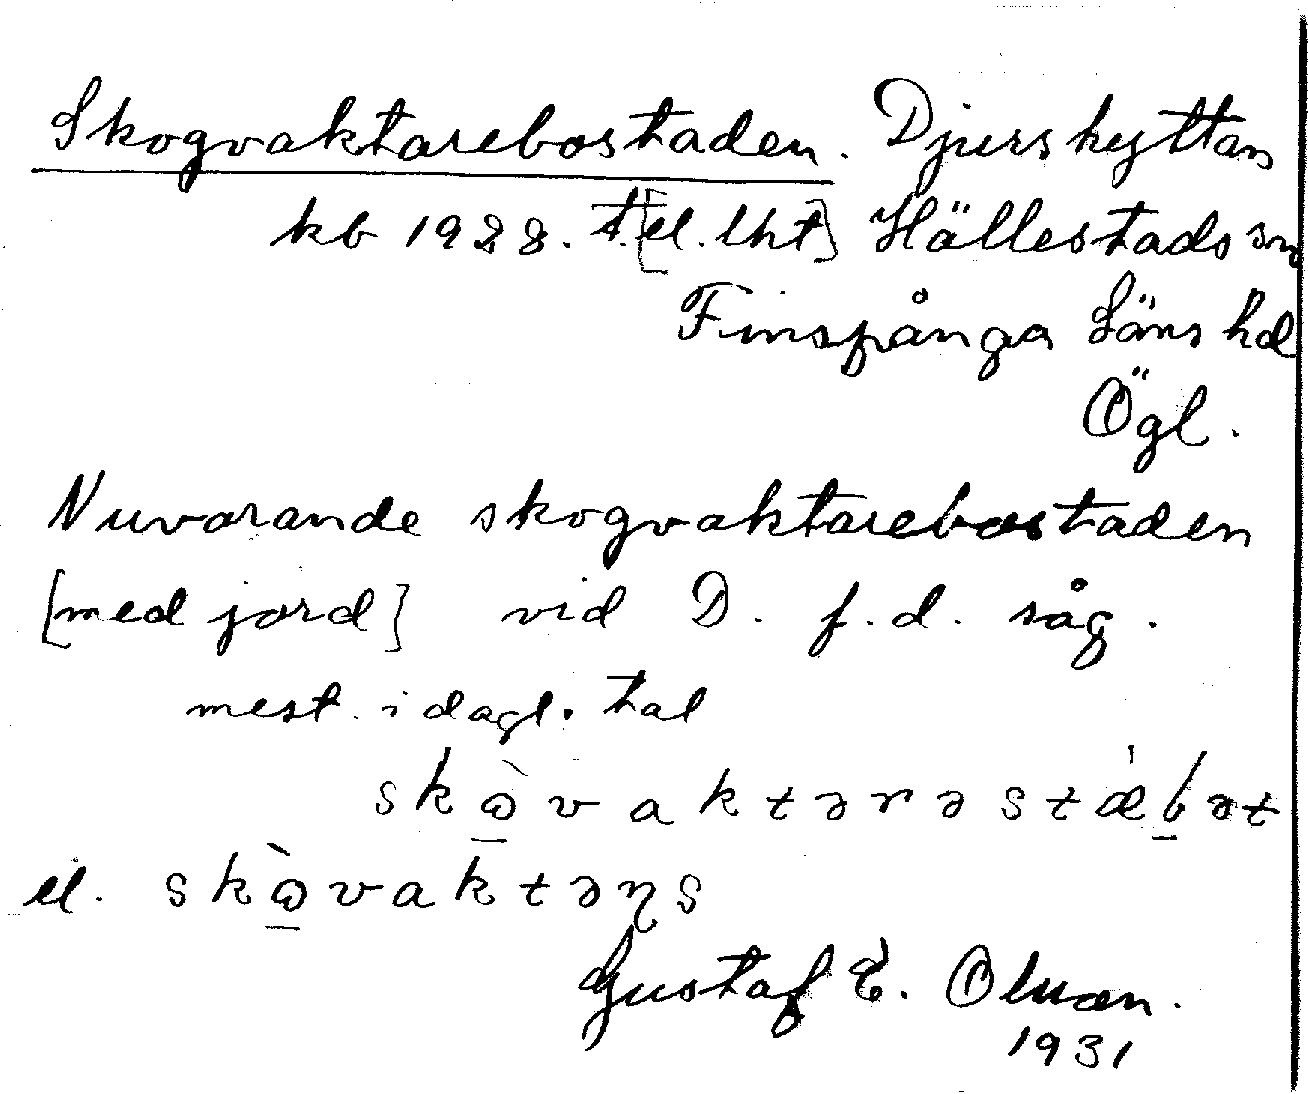 Skogvaktarebostaden. Djurshyttan
kb 1928. t. [el. lht] Hällestads sn
Finspånga Läns hd
Ögl.
Nuvarande skogvaktarebostaden
[med jord] vid D. f.d. såg.
mest i dagl. tal
el.
Gustaf E.
1931